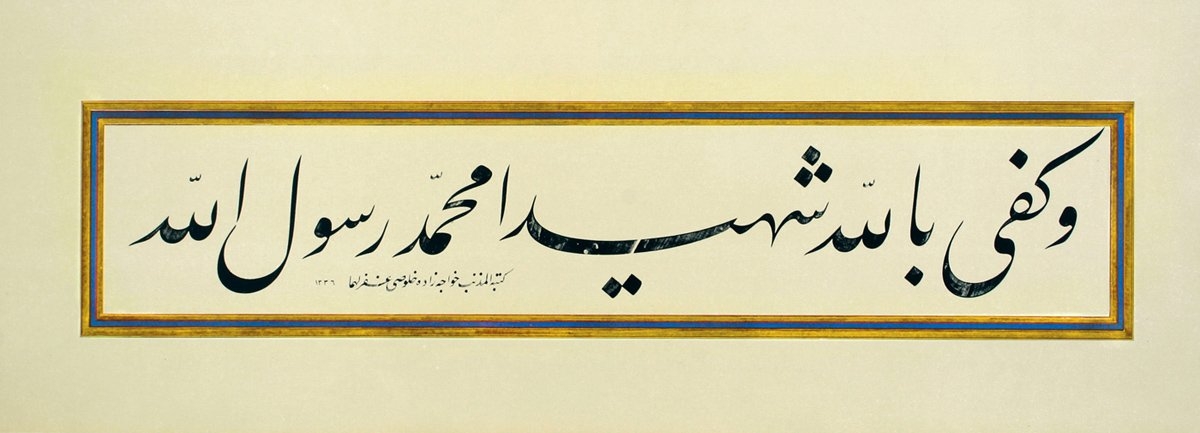 وكفى بالله شهيدا محمد رسول الله
كتبه المذنب خواجه زاده خلوصى غفر لهما ١٣٣٦